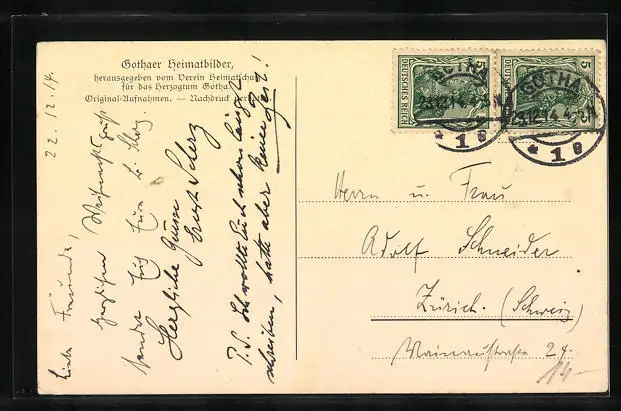 Gothaer Heimatbilder,
herausgegeben vom Verein Heimatschutz
für das Herzogtum Gotha.
Original-Aufnahmen. — Nachdruck
22.12.14.
Liebe Freunde,
herzlichen Weihnachtsgruß
sendet Euch Eure
Herzliche Grüsse
Ernst Scherz
P.S. Ich wollte Euch schon längst
schreiben, hatte aber keine Zeit!
DEUTSCHES REICH 5
DEUTSCHES REICH 5
GOTHA
23.12.14.4-5N
* 1 e
GOTHA
23.12.14.4-5N
* 1 e
Herrn u. Frau
Adolf Schneider
Zürich. (Schweiz)
24.
14-